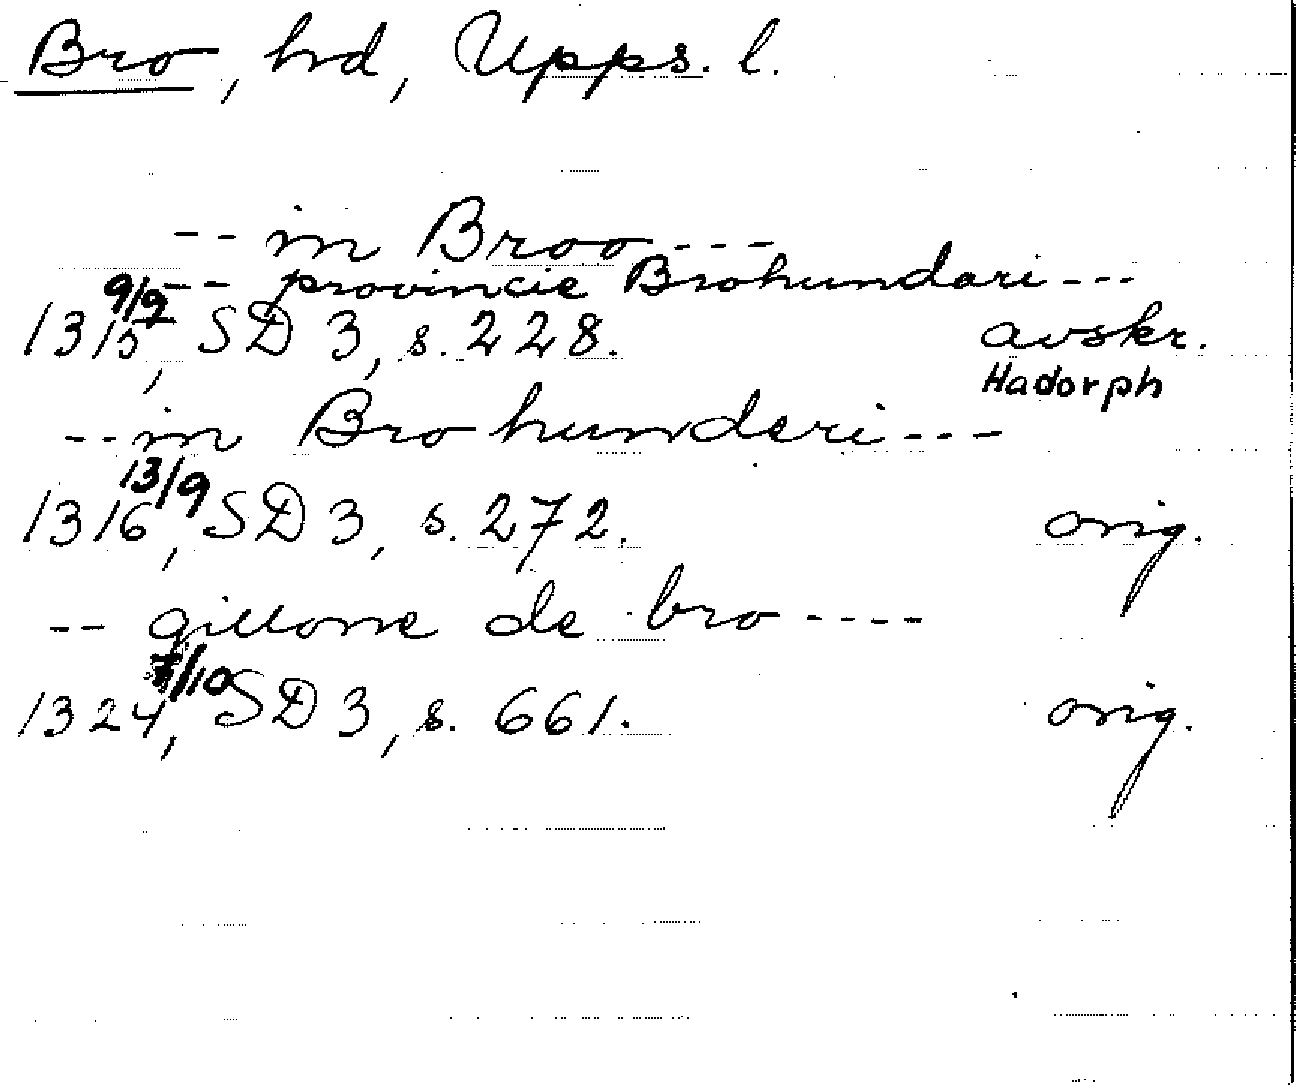 Bro, hd, Upps. l.
-- in Broo ---
-- provincie Brohundari ---
1315 9/9, SD 3, s. 228. avskr.
Hadorph
-- in Bro hunderi ---
1316 13/9, SD 3, s. 272. orig.
-- gillone de bro ----
1324 7/10, SD 3, s. 661. orig.